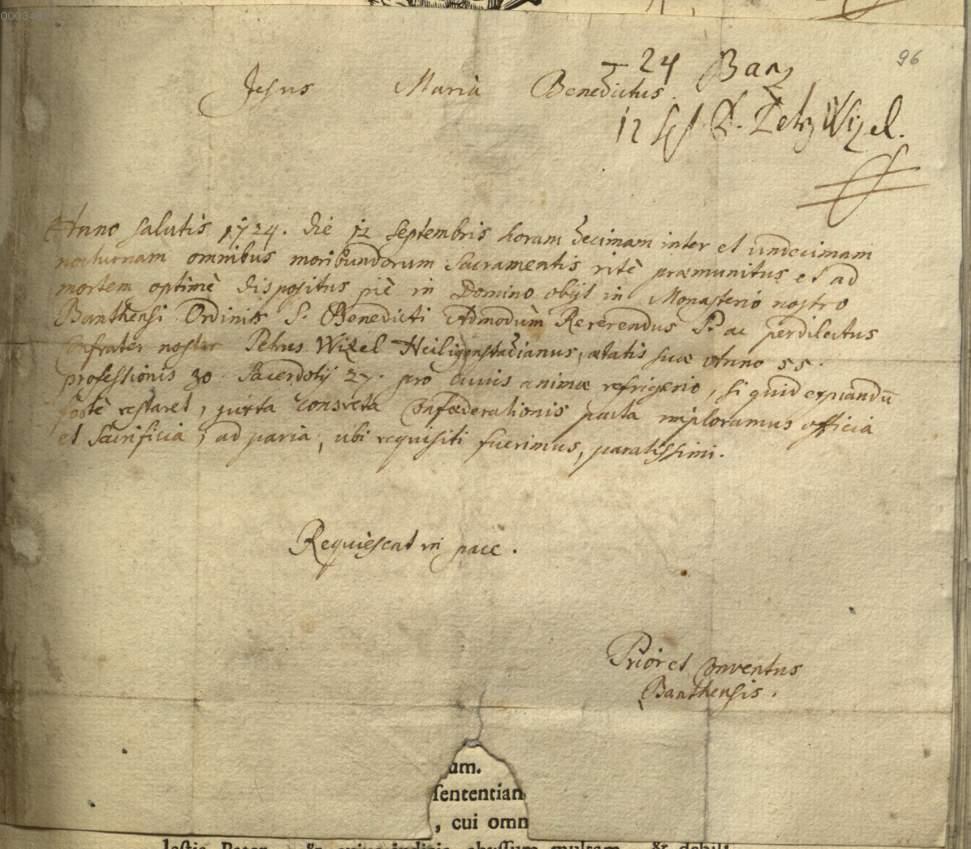 96
24 Banz
Jesus Maria Benedictus.
12 P. Petrus Wizel.
Anno salutis 1724. die 12 septembris horam decimam inter et undecimam
nocturnam omnibus moribundorum sacramentis ritè præmunitus et ad
mortem optimè dispositus piè in Domino obijt in Monasterio nostro
Banthensi Ordinis S. Benedicti Admodùm Reverendus P. ac perdilectus
Confrater noster Petrus Wizel Heiligenstadianus, ætatis suæ Anno 55.
professionis 30. Sacerdotij 27. pro cuius animæ refrigerio, si quid expiandū
fortè restaret, iuxta consueta Confœderationis pacta imploramus officia
et Sacrificia, ad paria, ubi requisiti fuerimus, paratissimi.
Requiescat in pace.
Prior et Conventus
Banthensis.
um.
sententian
, cui omn